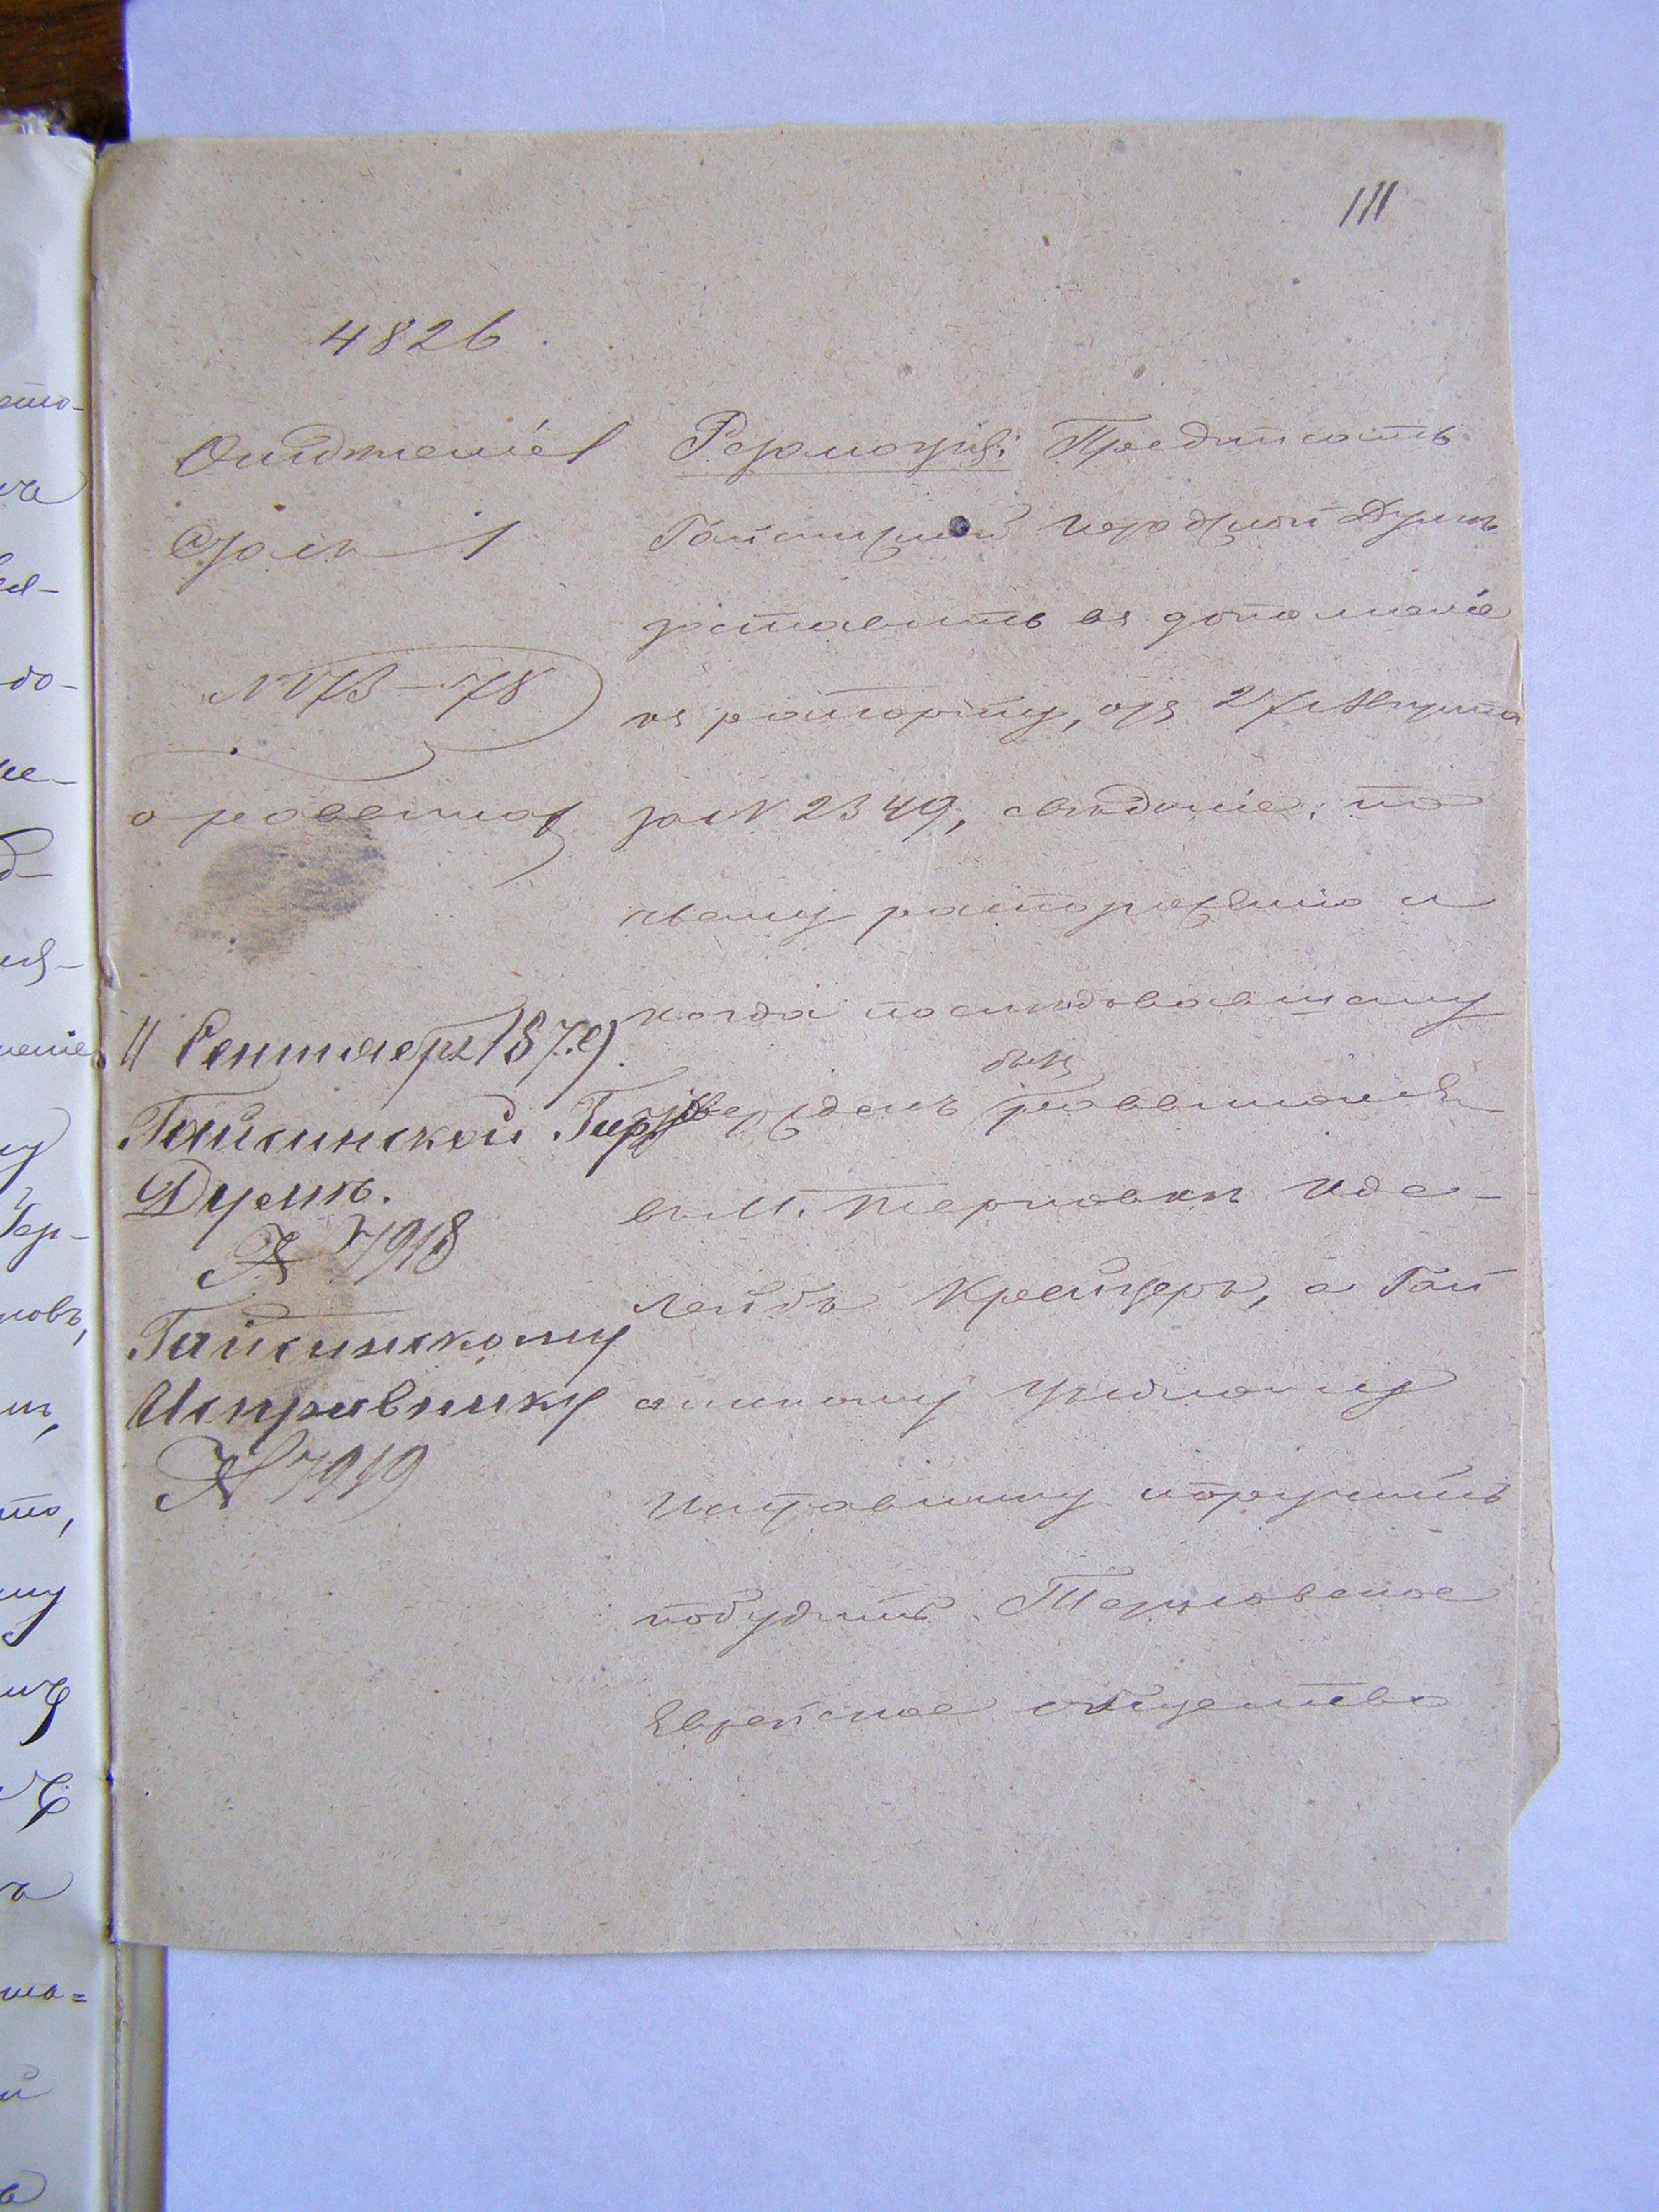 111
4826
Отдѣленіе 1
Столъ 1
№ 173–78
о раввинах
11 Сентября 1879
Гайсинской Гор
Думѣ.
№ 7918
Гайсинскому
Исправнику
№ 7919
Резолюція: Предписать
Гайсинской Городской Думѣ
доставить въ дополненіе
къ рапорту, отъ 27 Августа
за № 2349, свѣдѣніе: по
чьему распоряженію и
когда послѣдовавшему
былъ
утвержденъ раввиномъ
въ м. Терновкѣ Идель
Лейбъ Крейцеръ, а Гай
синскому Уѣздному
Исправнику поручить
побудить Терновское
Еврейское общество